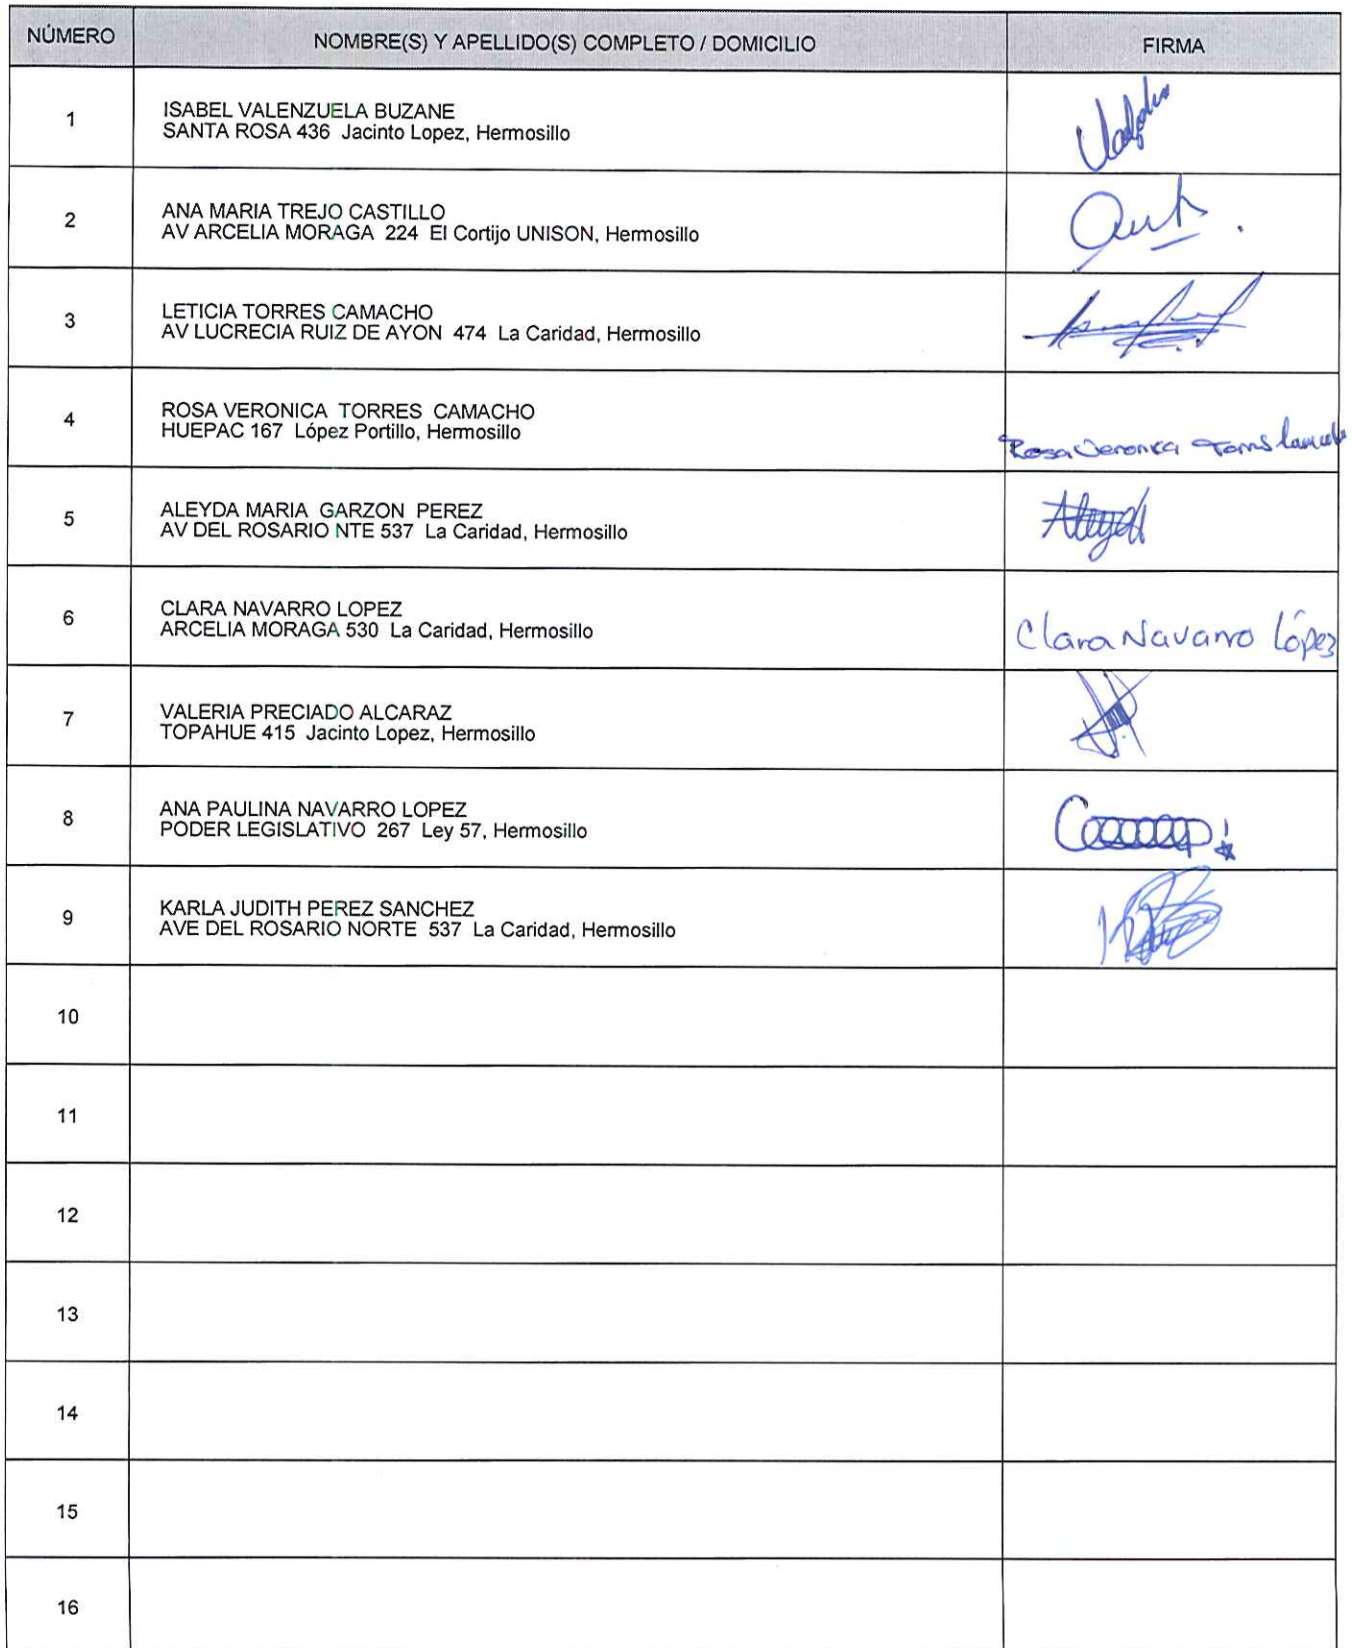 NÚMERO NOMBRE(S) Y APELLIDO(S) COMPLETO / DOMICILIO FIRMA
1 ISABEL VALENZUELA BUZANE
SANTA ROSA 436 Jacinto Lopez, Hermosillo
2 ANA MARIA TREJO CASTILLO
AV ARCELIA MORAGA 224 El Cortijo UNISON, Hermosillo
3 LETICIA TORRES CAMACHO
AV LUCRECIA RUIZ DE AYON 474 La Caridad, Hermosillo
4 ROSA VERONICA TORRES CAMACHO
HUEPAC 167 López Portillo, Hermosillo
Rosa Veronica
5 ALEYDA MARIA GARZON PEREZ
AV DEL ROSARIO NTE 537 La Caridad, Hermosillo
6 CLARA NAVARRO LOPEZ
ARCELIA MORAGA 530 La Caridad, Hermosillo
Clara Navarro López
7 VALERIA PRECIADO ALCARAZ
TOPAHUE 415 Jacinto Lopez, Hermosillo
8 ANA PAULINA NAVARRO LOPEZ
PODER LEGISLATIVO 267 Ley 57, Hermosillo
9 KARLA JUDITH PEREZ SANCHEZ
AVE DEL ROSARIO NORTE 537 La Caridad, Hermosillo
10
11
12
13
14
15
16